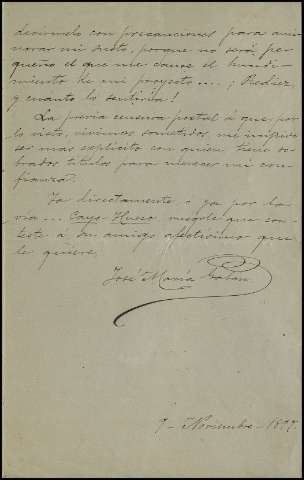 decírmelo con precauciones para ami-
norar mi susto, porque no será pe-
queño el que me cause el hundi-
miento de mi proyecto...., ¡Rediez
y cuanto lo sentiría!
La previa censura postal á que, por
lo visto, vivimos sometidos, me impide
ser mas esplícito con quien tiene so-
brados títulos para merecer mi con-
fianza.
Ya directamente o ya por la
vía... Cayo Hueso ruégole que con-
teste á su amigo afectísimo que
le quiere,
José María
9 - Noviembre - 1897